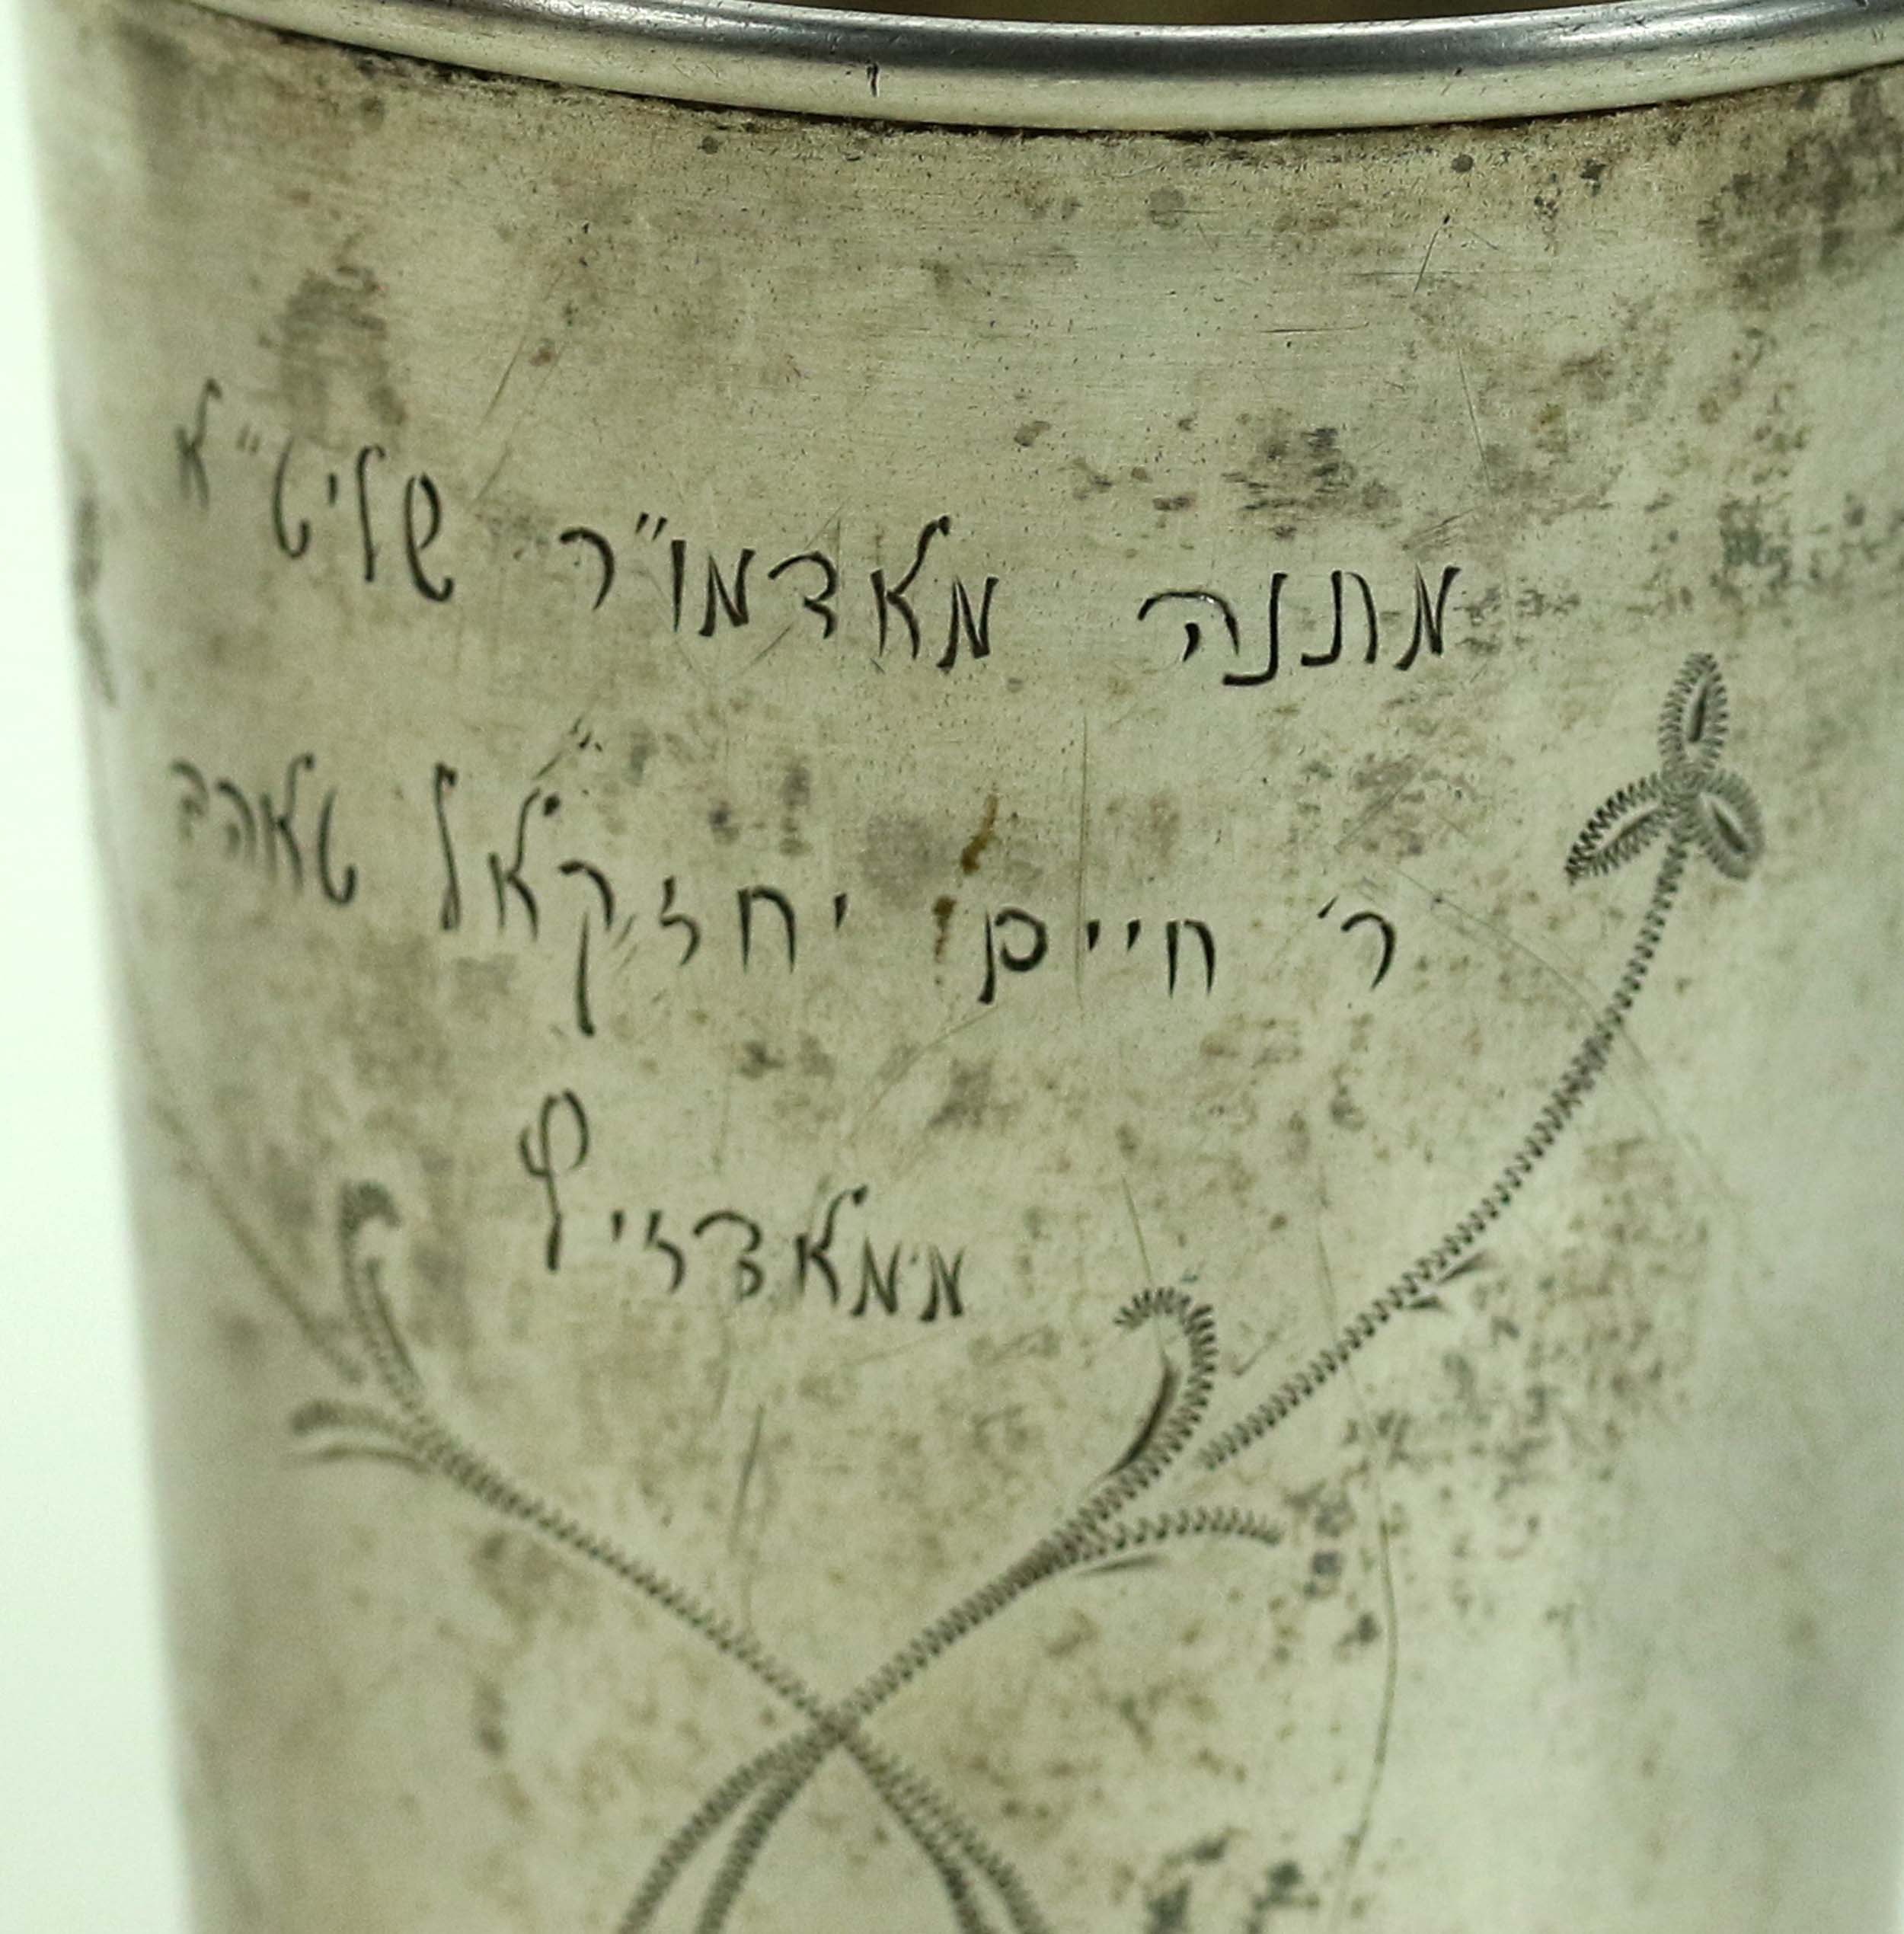 מתנה מאדמו"ר שליט"א
ר' חיים יחזקאל טאהב
ממאדזיץ